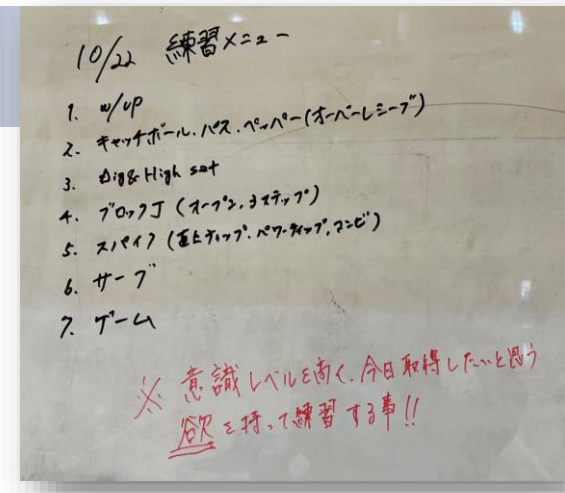 10/22 練習メニュー
1. w/up
2. キャッチボール.パス.ペッパー(オーバーレシーブ)
3. Dig & High set
4. ブロックJ (オープン,3ステップ)
5. スパイク (真上チップ.パワーチップ,マンビ)
6. サーブ
7. ゲーム
※ 意識レベルを高く.今日取得したいと思う
欲を持って練習する事!!